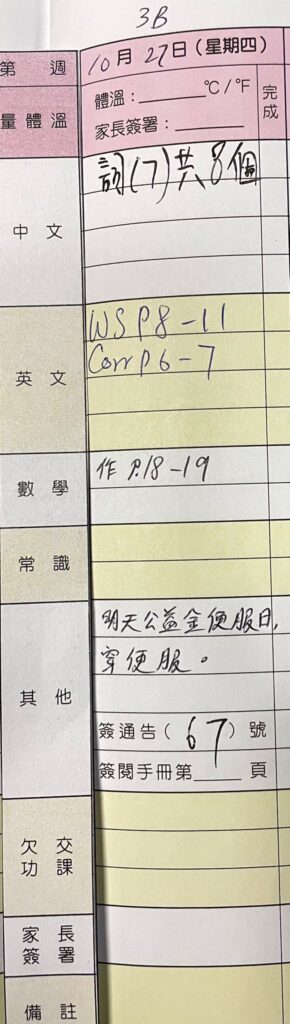 3B
第 週
10月27日(星期四)
量體溫
體溫:______°C/°F
家長簽署:______
完成
中文
詞(7)共8個
英文
WS P8-11
Corr P6-7
數學
作 P.18-19
常識
其他
明天公益金便服日,
穿便服。
簽通告(67)號
簽閱手冊第____頁
欠交功課
家長簽署
備註